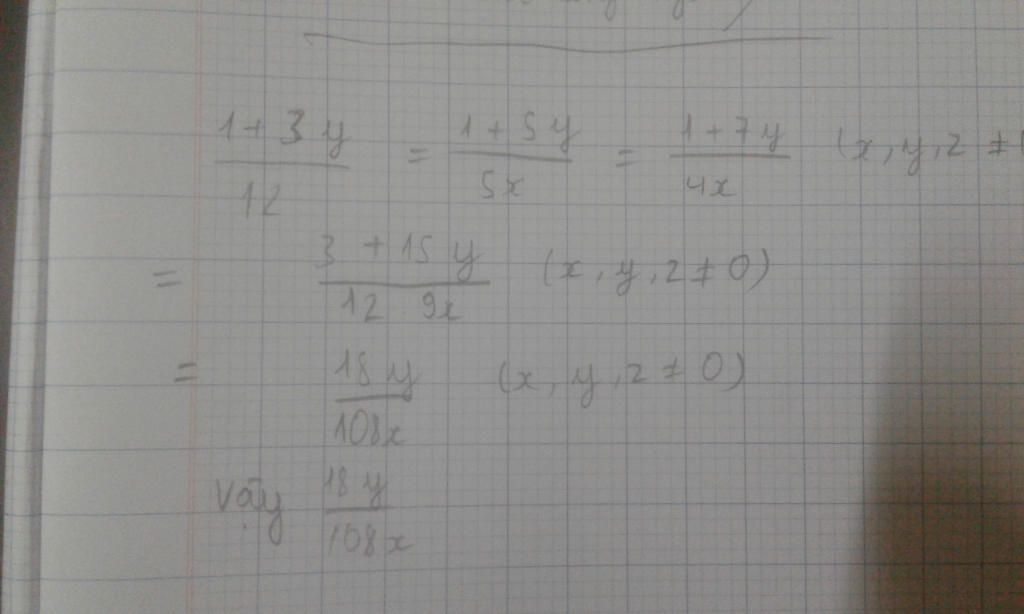 (1 + 3y)/12 = (1 + 5y)/5x = (1 + 7y)/4x (x, y, z ≠
= (3 + 15y)/(12 9x) (x, y, z ≠ 0)
= 18y/108x (x, y, z ≠ 0)
Vậy 18y/108x